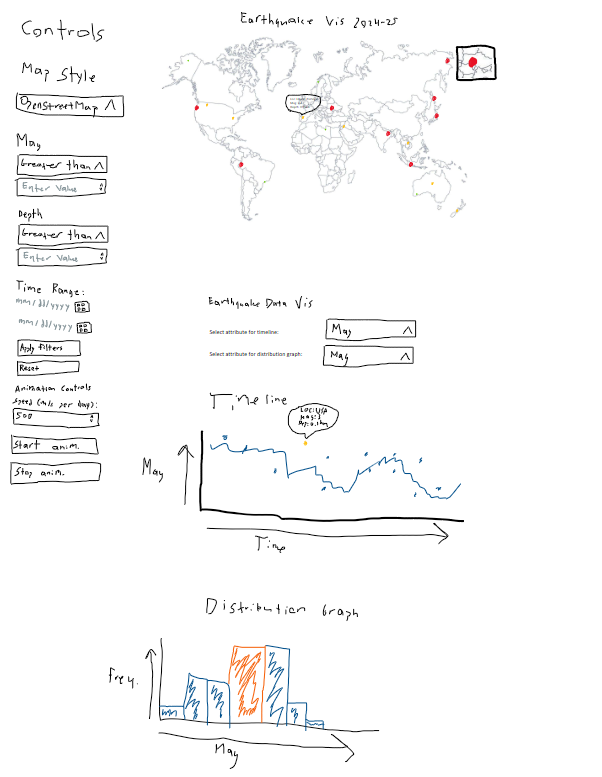 Controls
Map Style
OpenStreetMap
Mag
Greater than
Enter Value
Depth
Greater than
Enter Value
Time Range:
mm/dd/yyyy
mm/dd/yyyy
Apply filters
Reset
Animation Controls
Speed (ms per day):
500
Start anim.
Stop anim.
Earthquake Vis 2024-25
Earthquake Data Vis
Select attribute for timeline:
Mag
Select attribute for distribution graph:
Mag
Timeline
Loc: USA
Mag: 3
Mag
Time
Distribution Graph
Freq.
Mag